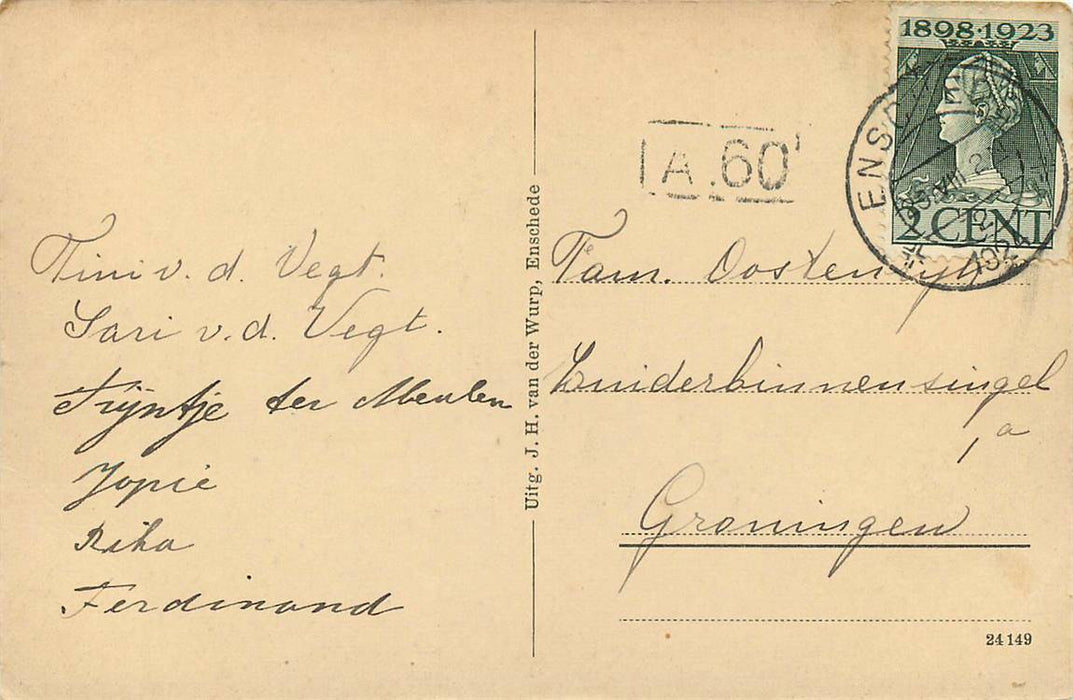 Tini v. d. Vegt.
Sari v. d. Vegt.
Trijntje ter Meulen
Jopie
Rika
Ferdinand
Uitg. J. H. van der Wurp, Enschede
1898·1923
2 CENT
A.60
Fam. Oostenryk
Zuiderbinnensingel
1a
Groningen
24149